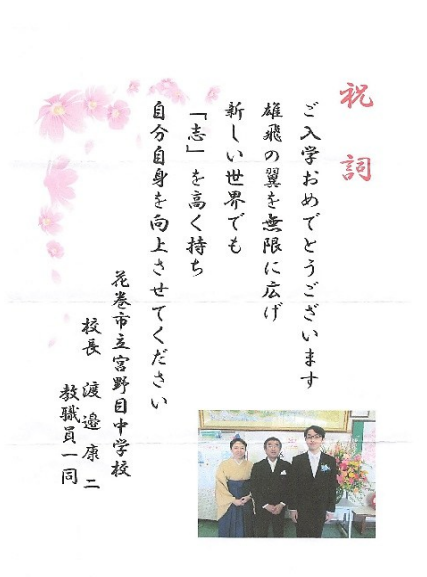 祝詞
ご入学おめでとうございます
雄飛の翼を無限に広げ
新しい世界でも
「志」を高く持ち
自分自身を向上させてください
花巻市立宮野目中学校
校長 渡邉康二
教職員一同